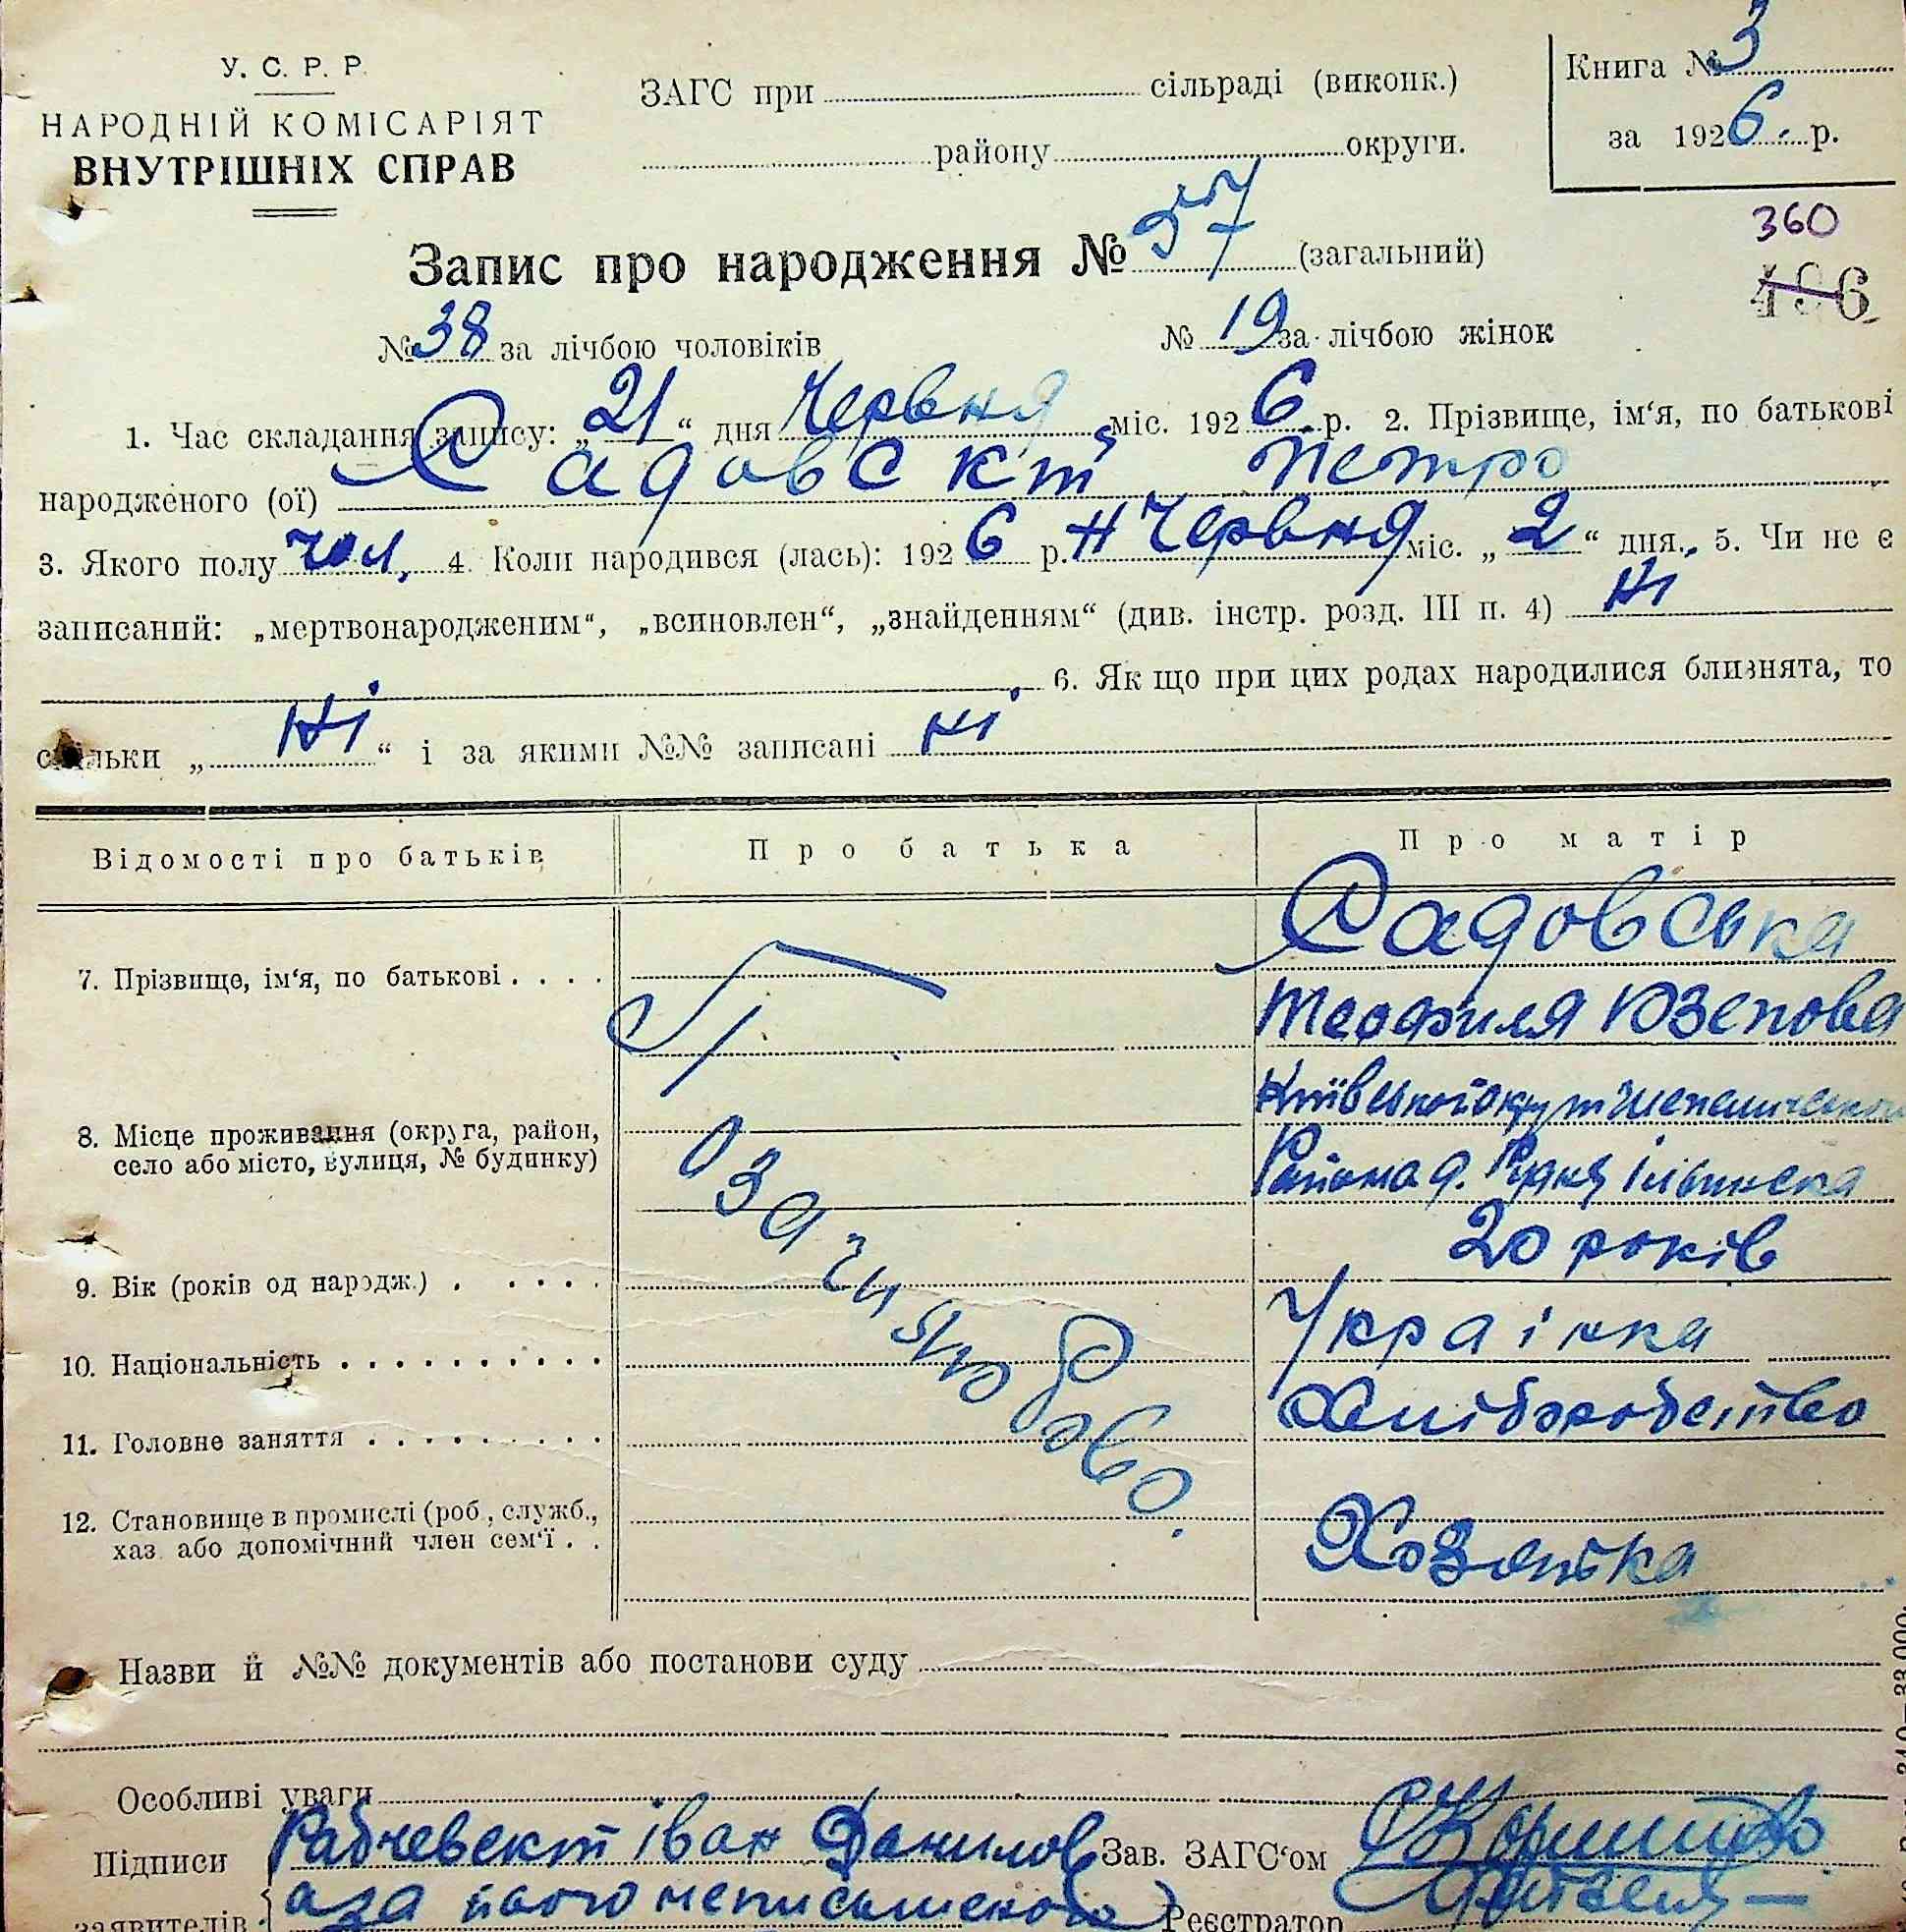 У. С. Р. Р.
НАРОДНІЙ КОМІСАРІЯТ
ВНУТРІШНІХ СПРАВ
ЗАГС при сільраді (виконк.)
району округи.
Книга № 3
за 1926 р.
360
Запис про народження № 57 (загальний)
496
№ 38 за лічбою чоловіків № 19 за лічбою жінок
1. Час складання запису: „21“ дня Червня міс. 1926 р. 2. Прізвище, ім‘я, по батькові
народженого (ої) Садовскій Петро
3. Якого полу чол. 4. Коли народився (лась): 1926 р. Червня міс. „2“ дня. 5. Чи не є
записаний: „мертвонародженим“, „всиновлен“, „знайденням“ (див. інстр. розд. III п. 4) ні
6. Як що при цих родах народилися близнята, то
скільки „ ні “ і за якими №№ записані ні
Відомості про батьків Про батька Про матір
Садовська
7. Прізвище, ім‘я, по батькові . . . .
Теофиля Юзепова
8. Місце проживання (округа, район, Київської
село або місто, вулиця, № будинку) Района д. Рудня
20 років
9. Вік (років од народж.) . . . . .
10. Національність . . . . . . . . . . . Українка
11. Головне заняття . . . . . . . . . Хліборобство
12. Становище в промислі (роб., служб.,
хаз. або допомічний член сем‘ї . . Хозяйка
Назви й №№ документів або постанови суду
Особливі уваги
Підписи Рабчевский Іван Данилов Зав. ЗАГС‘ом
заявителів а за його неписьменого Реєстратор